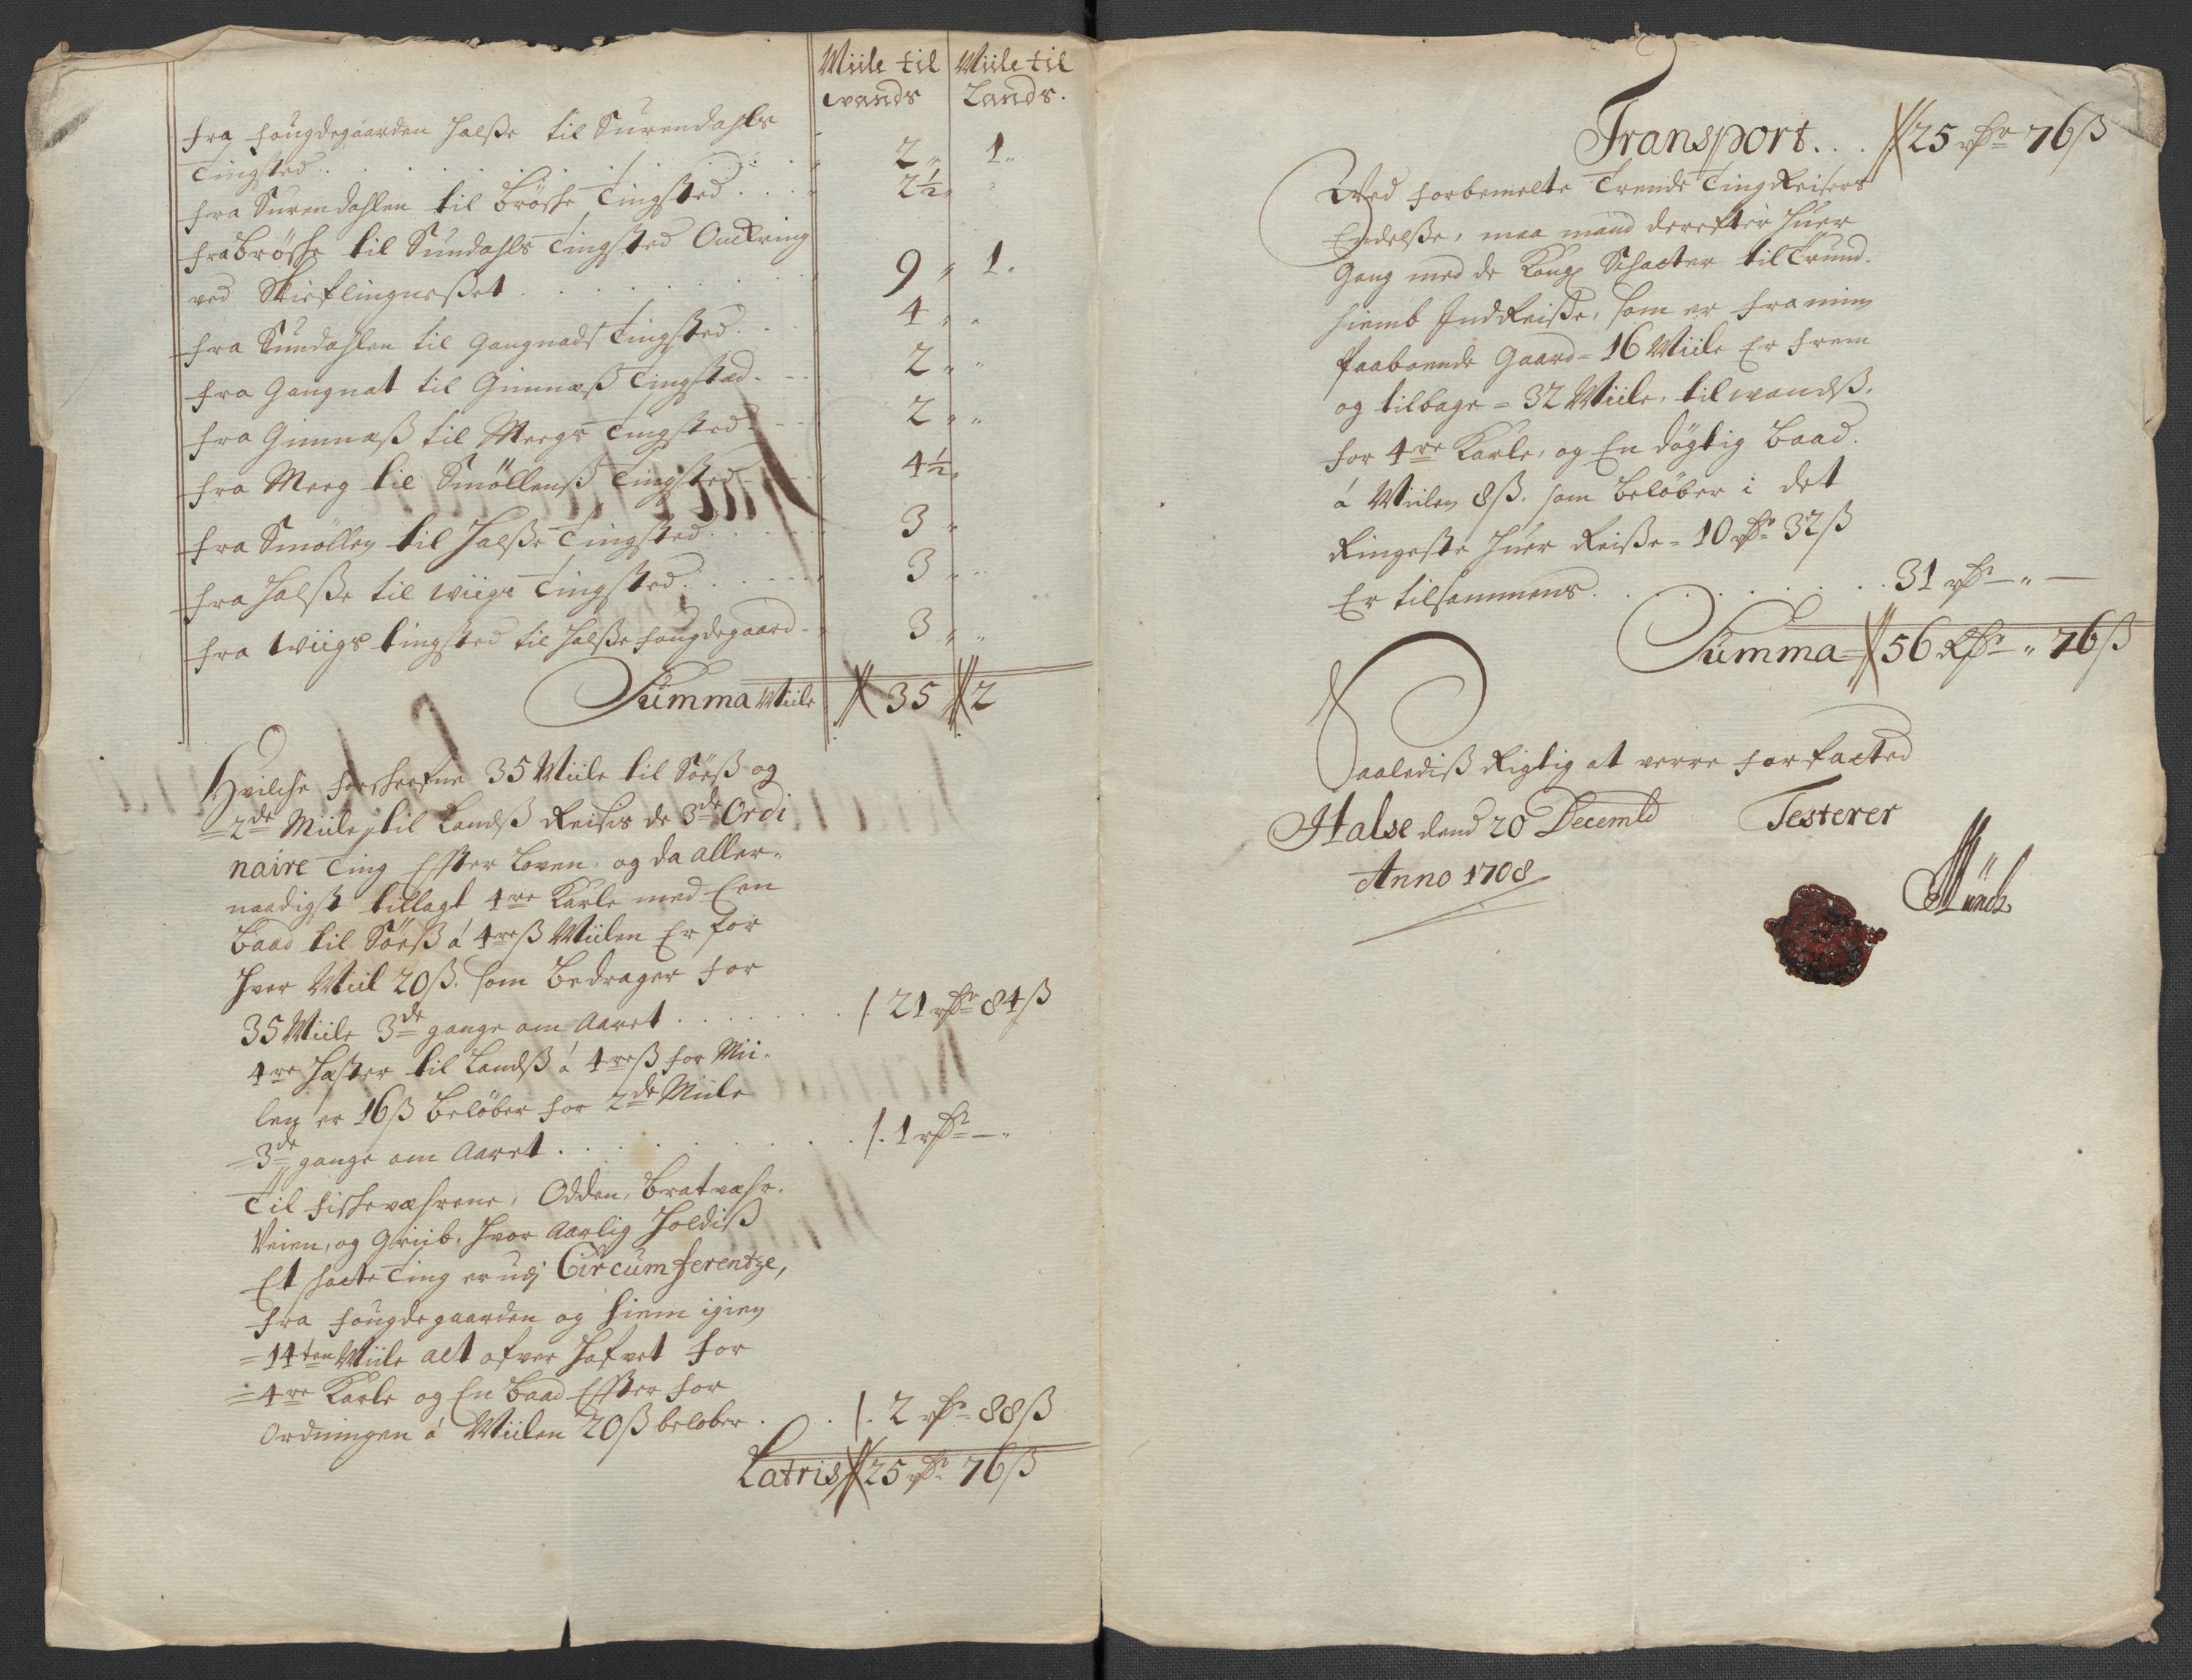 Miile til Miile til
wands Lands.
fra fougdegaarden Halsse til Surendahls
Tingsted . . . . . . 2 „ 1 „
fra Surendahlen til Brösche Tingsted . . . 2½ „
fra Brösche til Sundahls Tingsted Omkring
ved Skieflingnesset . . . . . . 9 „ 1.
fra Sundahlen til Gangnads Tingsted . . 4 „ „
fra Gangnat til Gimnæss Tingsted . - - 2 „ „
fra Gimnæss til Meegs Tingsted - - 2 „ „
fra Meeg til Smöllenss Tingsted - - - 4½ „
fra Smöllen til Halsse Tingsted . . . . 3 „
fra Halsse til Wiigs Tingsted . . . - - 3 „ „
fra Wiigs tingsted til Halsse fougdegaard - 3 „ „
Summa Miile 35 2
Hvilche forskrefne 35 Miile til Söess og
2de Miile til Landss Reises de 3de Ordi
naire Ting Effter Loven, og da aller-
naadigst tillagt 4re Karle med Een
Baad til Söess á 4re ß Miilen Er for
hver Miil 20 ß. som bedrager for
35 Miile 3de gange om Aaret . . . . . . 21 rdr 84 ß
4re Hæster til Landss á 4re ß for Mii-
len er 16 ß beløber for 2de Miile
3de gange om Aaret . . . . . . . 1 rdr — „
Til fischeværene, Odden, Bratvæhr,
Veien, og Griib, hvor Aarlig holdiss
Et skatte Ting er udj Circumferentze,
fra fougdegaarden og hiem igien
14ten Miile alt ofver Hafvet for
4re Karle og En Baad Effter for
Ordningen á Miilen 20 ß beløber . . . 2 rdr 88 ß
Latris 25 rdr 76 ß
Transport . . . 25 rdr 76 ß
Wed forbemelte Trende Ting Reisers
Endelsse, maa mand derefter huer
Gang med de Kong Schatter til Trund-
hiemb IndReisse, som er fra min
Paaboende Gaard = 16 Miile Er frem
og tilbage = 32 Miile, til wandss,
for 4re Karle, og En døgtig Baad
á Miilen 8 ß. som beløber i det
Ringeste huer Reisse = 10 rdr 32 ß
Er tilsammens . . . . . . . 31 rdr — „ —
Summa 56 Rdr „ 76 ß
Saalediss Rigtig at verre forfatted
Halse dend 20 Decembr Testerer
Anno 1708
Münch